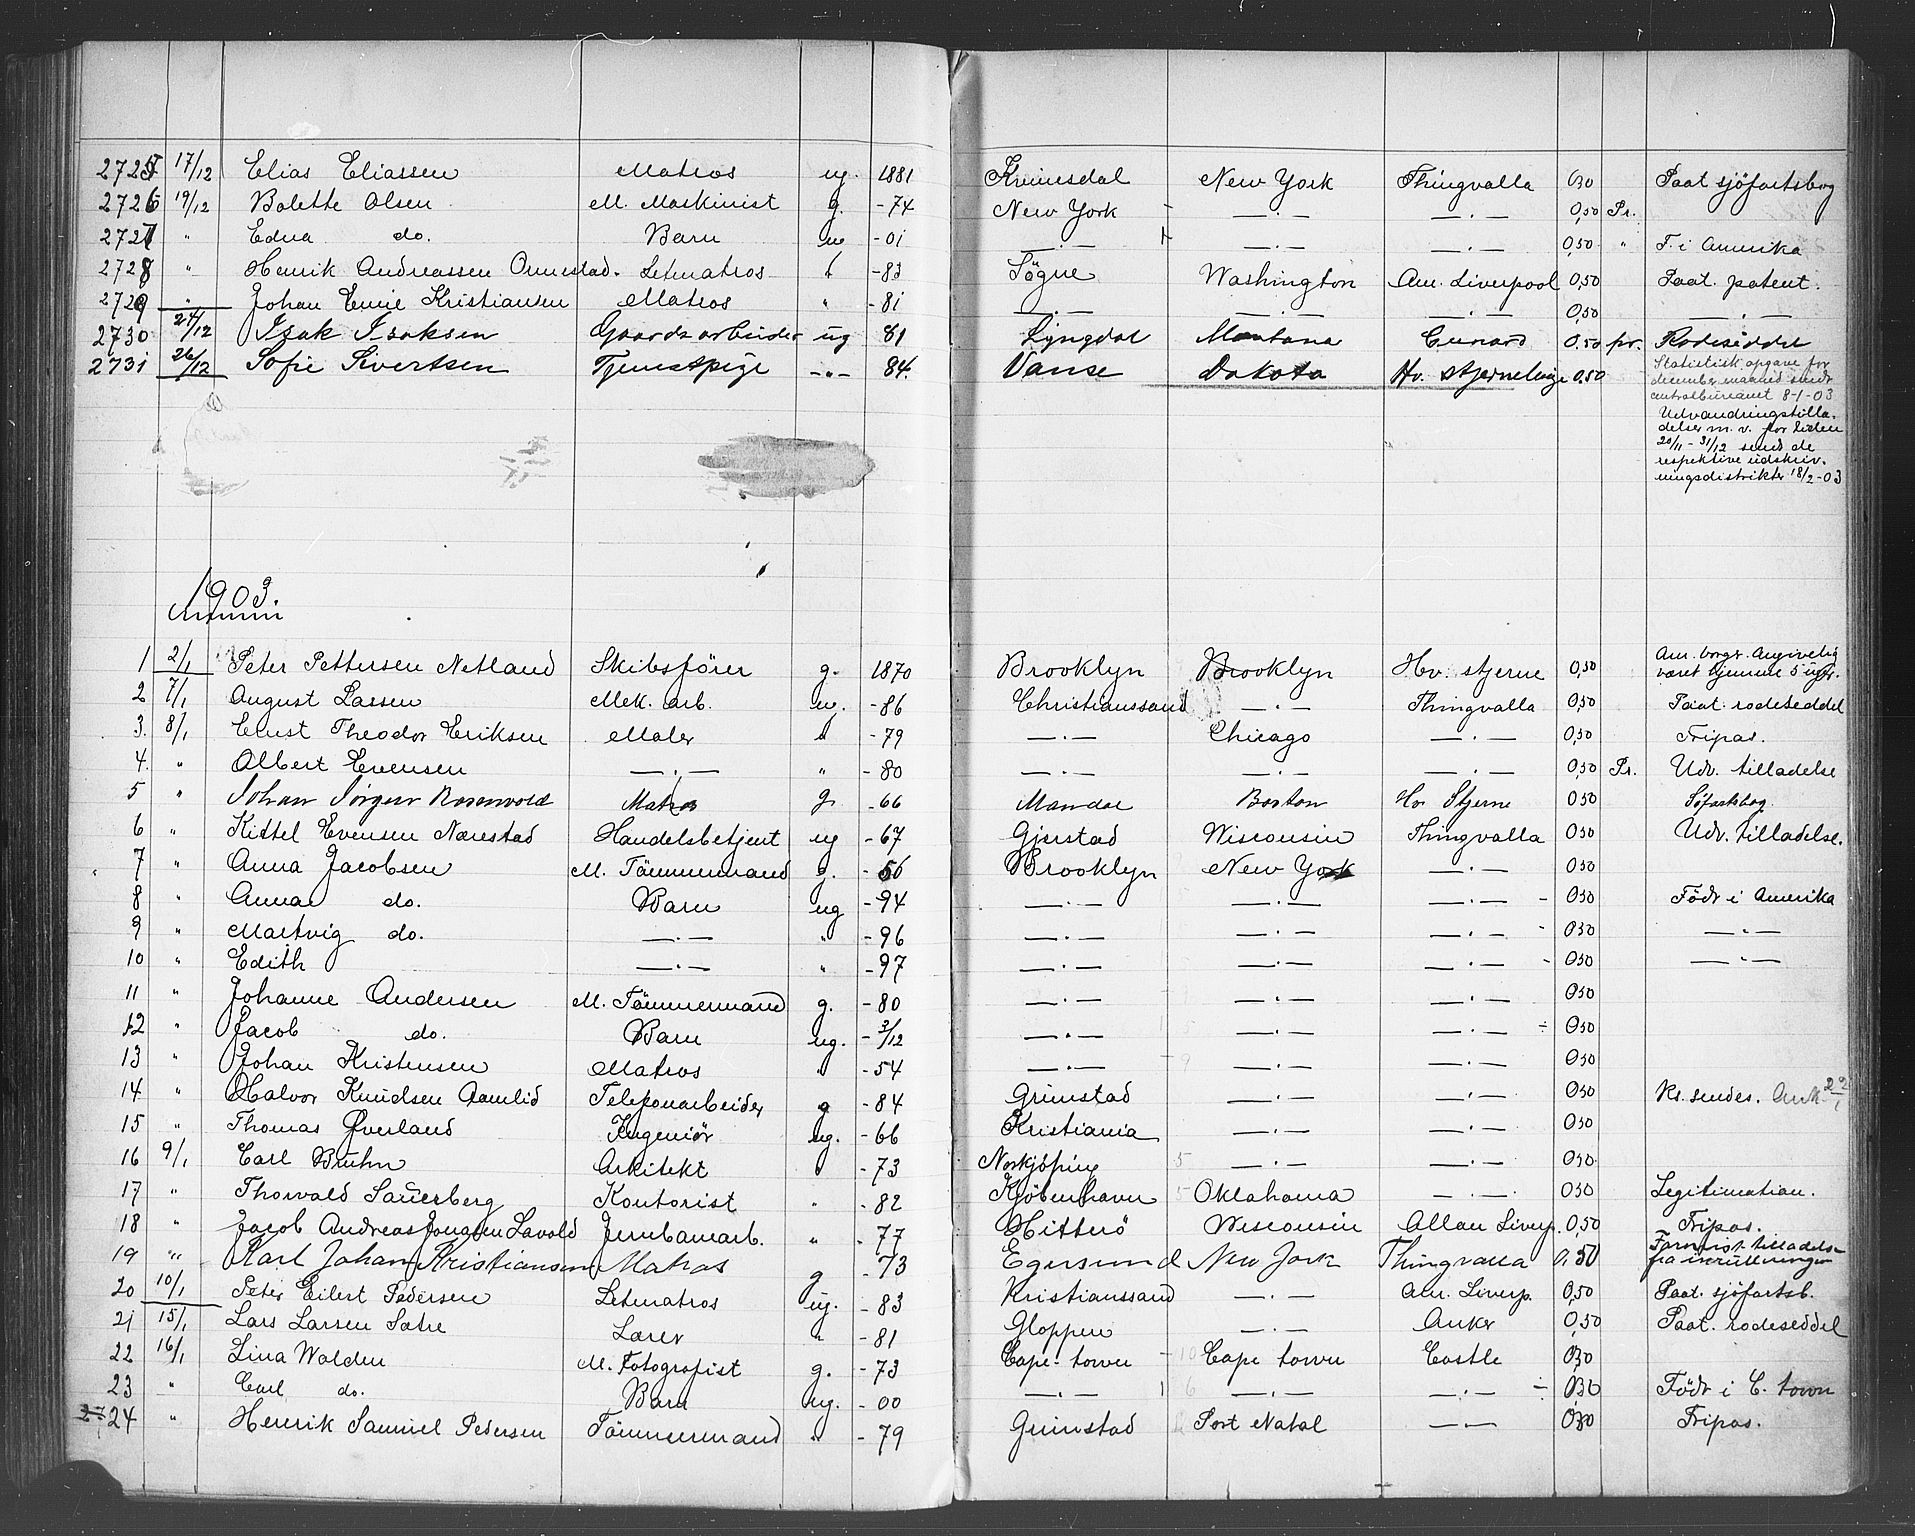 2725 17/12 Elias Eliassen Matros ug. 1881 Kvinesdal New York Thingvalla 0,30 Paat. sjöfartsbog
2726 19/12 Bolette Olsen M. Maskinist g. -74 New York —·— —·— 0,50 Pr.
2727 " Edna do. Barn u -01 —·— —·— —·— 0,50 " F. i Amerika
2728 " Henrik Andreassen Omnestad. Letmatros -83 Søgne Washington Am. Liverpool 0,50 Paat. patent.
2729 " Johan Emil Kristiansen Matros " -81 —·— —·— —·— 0,50 —·—
2730 24/12 Isak Isaksen Gaardsarbeider ug 81 Lyngdal Montana Cunard 0.50 pr. Rodeseddel
2731 26/12 Sofie Sivertsen Tjenestpige —"— 84. Vanse Dakota Hv. stjernelinje 0.50
Statistisk opgave for
december maaned sendt
centralbureauet 8-1-03
Udvandringstilla-
delser m. v. for tiden
20/11 - 31/12 sendt de
respektive udskriv-
ningsdistrikter 18/2-03
1903.
1 2/1 Peter Pettersen Netland Skibsförer g. 1870 Brooklyn Brooklyn Hv. stjerne 0,50 Am. borgr. Angivelig
været hjemme 5 uger.
2 7/1 August Larsen Mek. arb. u. -86 Christianssand —·— Thingvalla 0,50 Paat. rodeseddel
3. 8/1 Ernst Theodor Eriksen Maler -79 —·— Chicago —·— 0,50 Fripas.
4. " Albert Evensen —·— " -80 —·— —·— —·— 0,50 Pr. Udv. tilladelse
5 " Johan Jörgen Rosenvold Matros g. -66 Mandal Boston Hv. Stjerne 050 Söfartsbog
6 " Kittel Evensen Nærestad Handelsbetjent ug -67 Gjerstad Wisconsin Thingvalla 050 Udv. tilladelse.
7 " Anna Jacobsen M. Tömmermand g. -56 Brooklyn New York —·— 050
8 " Anna do. Barn ug -94 —·— —·— —·— 050 Född i Amerika
9 " Martvig do. —·— " -96 —·— —·— —·— 050 —"—
10 " Edith —·— " -97 —·— —·— —·— 050 —"—
11 " Johanne Andersen M. Tömmermand g. -80 —·— —·— —·— 050
12 " Jacob do. Barn ug. -3/12 —·— —·— —·— 050
13 " Johan Kristensen Matros -54 —·— —·— —·— 050
14 " Halvor Knudsen Aamlid Telefonarbeider g -84 Grimstad —·— —·— 050 Ks. sendes. Ank 22/1
15 " Thomas Øverland Ingeniör ug. -66 Kristiania —·— —·— 050
16 9/1 Carl Bruhn Arkitekt -73 Norkjöping —·— —·— 050.
17 " Thorvald Sauerberg Kontorist " -82 Kjöbenhavn Oklahoma —·— 050 Legitimation.
18 " Jacob Andreas Jonassen Lavold Jernbanearb. " -77 Hitterö Wisconsin Allan Liverp. 0,50 Fripas.
19 " Karl Johan Kristiansen Matros g -73 Egersund New York Thingvalla 0,50 tilladelse
fra inrulleringen
20 10/1 Peter Eilert Pedersen Letmatros ug. -83 Kristianssand —·— Am. Liverp. 0,50 Paat. sjöfartsb.
21 15/1 Lars Larsen Sætre Lærer " -81 Gloppen —·— Anker 0,50 Paat. rodeseddel
22 16/1 Lina Walden M. Fotografist g. -73 Cape-town Cape town Castle 0,30
23 " Carl do. Barn ug. -00 —·— —·— —·— 0,30 Född i C. town
24 " Henrik Samuel Pedersen Tömmermand " -79 Grimstad Port Natal —·— 0,30 Fripas.